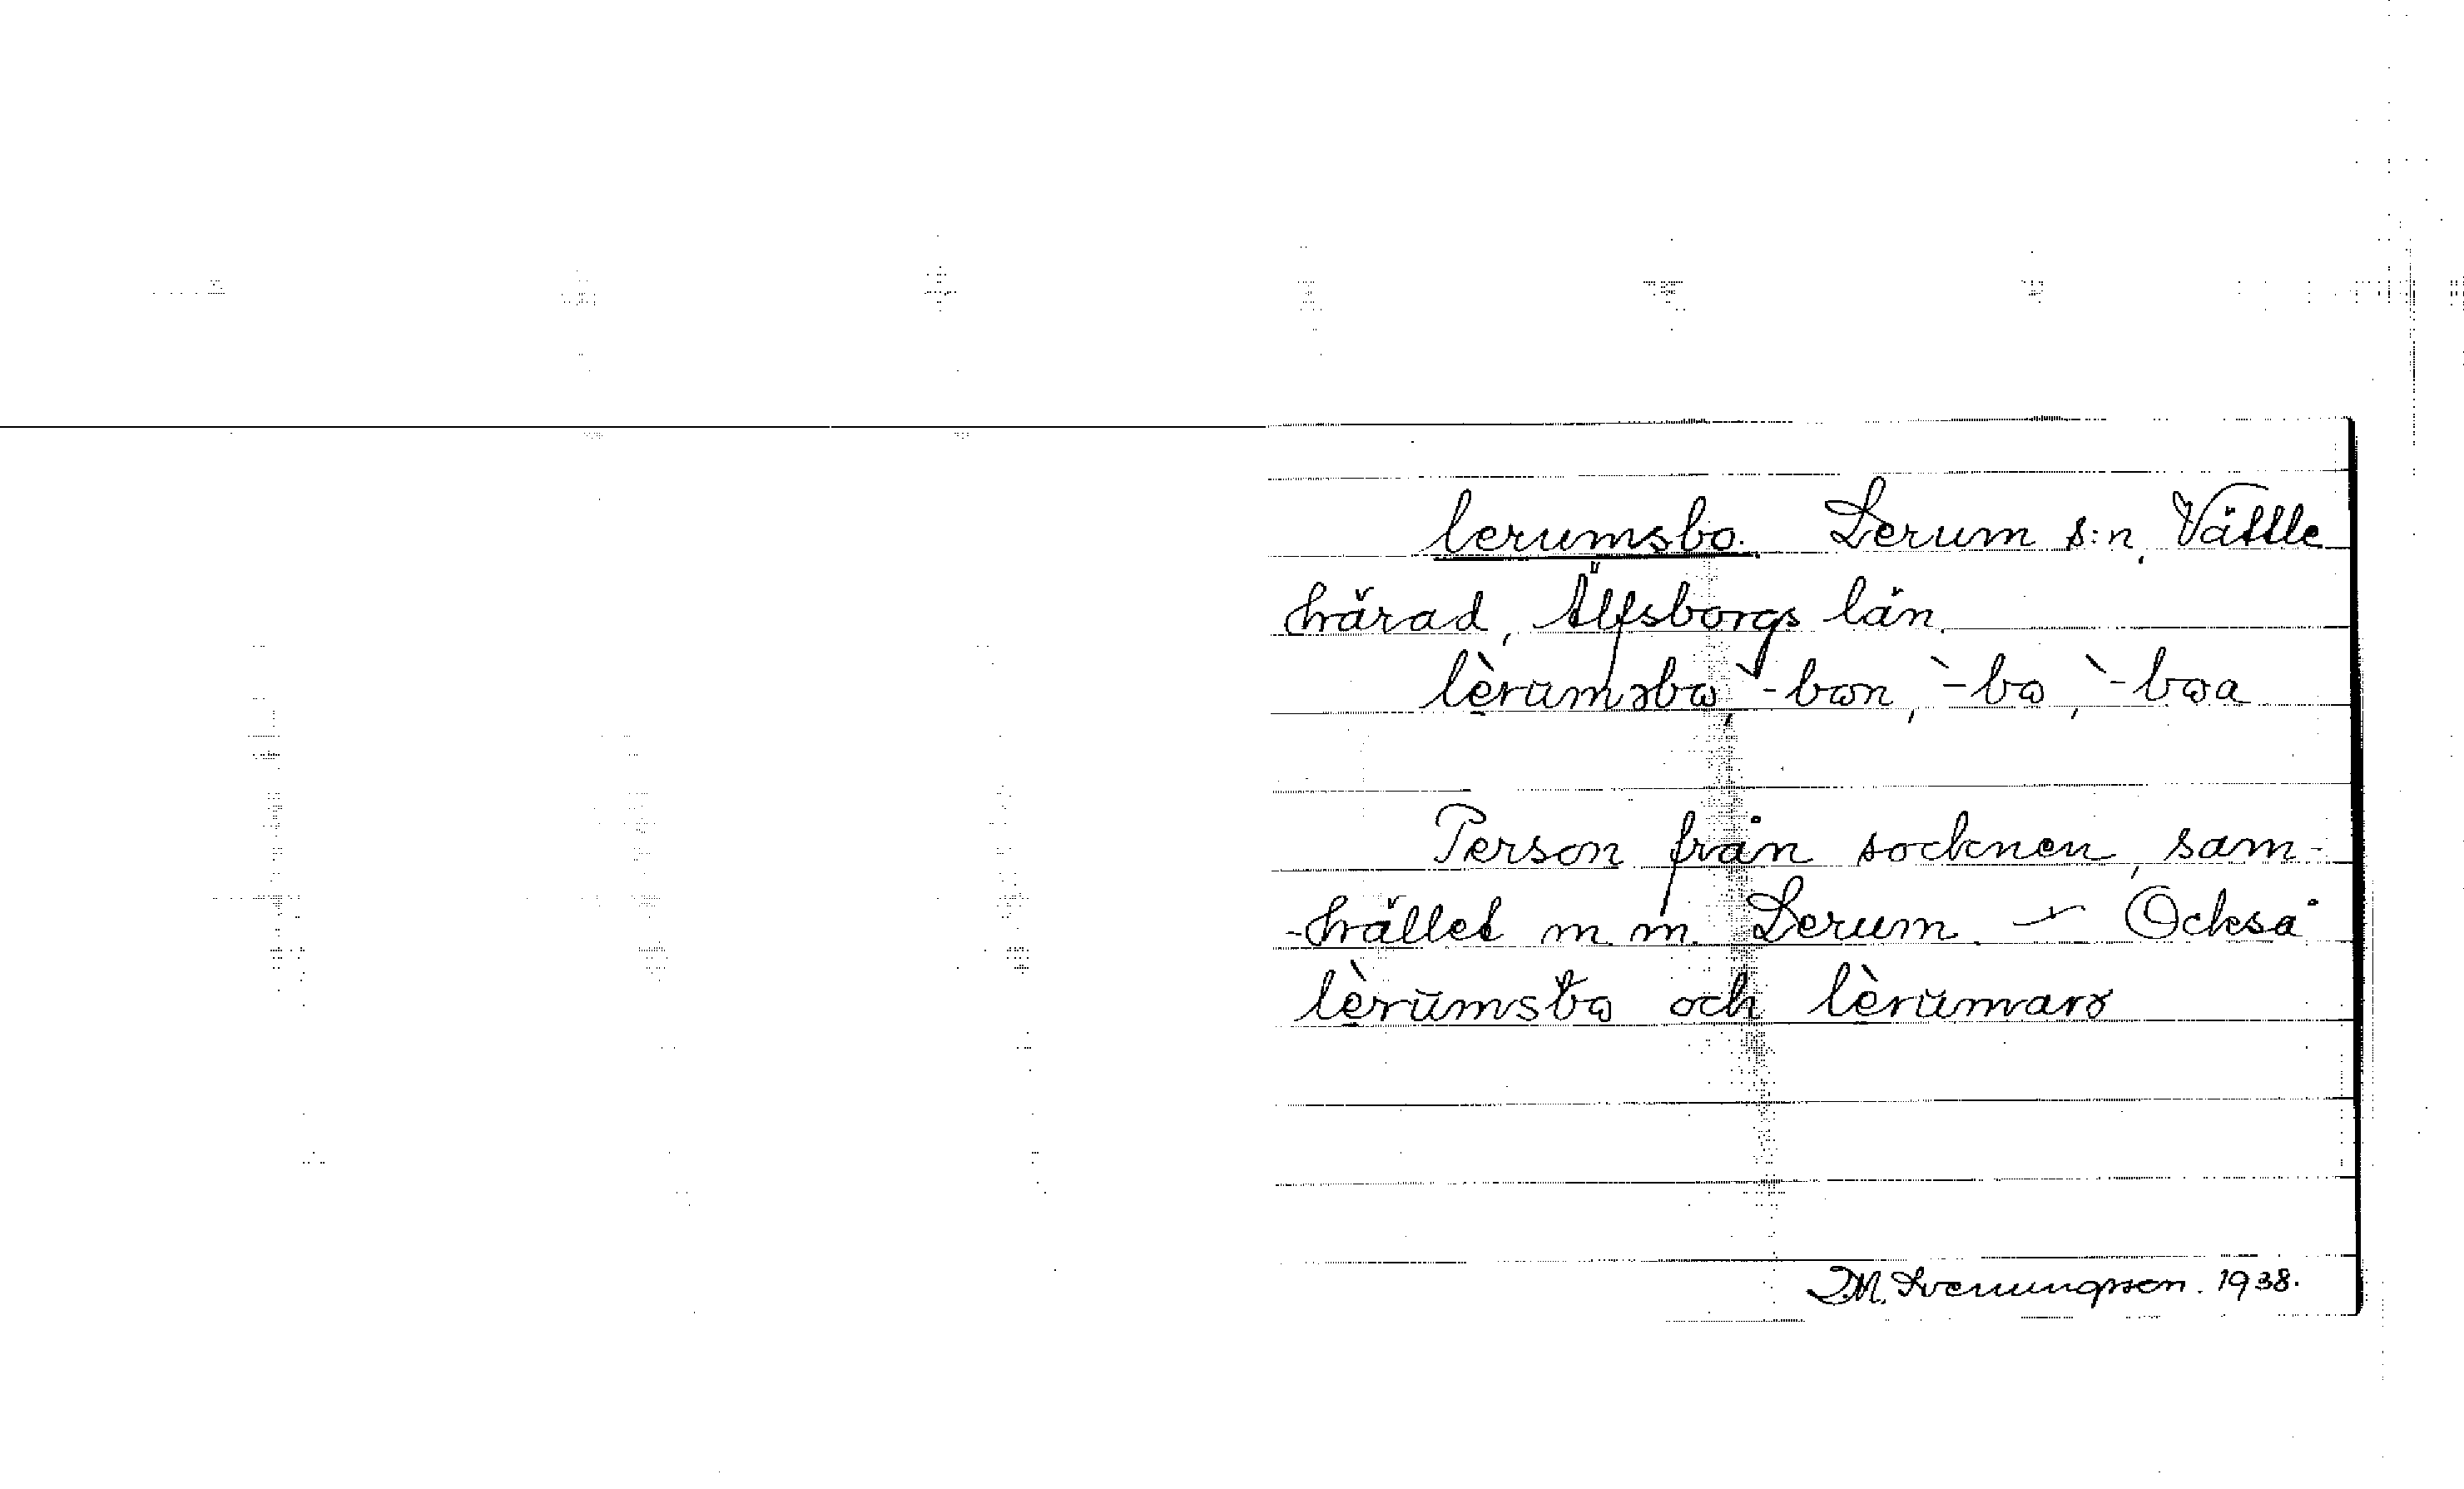 lerumsbo. Lerum s:n, Vättle
härad, Älfsborgs län.
lèrumsbo, `-bon, `-bo, `-boa
Person från socknen, sam-
-hället m. m. Lerum. – Också
lèrumsbo och lèrumarə
1938.